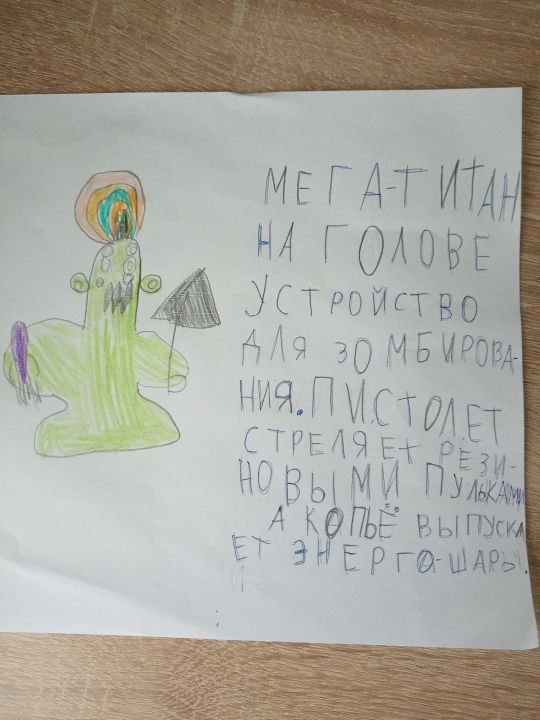 МЕГА-ТИТАН
НА ГОЛОВЕ
УСТРОЙСТВО
ДЛЯ ЗОМБИРОВА-
НИЯ. ПИСТОЛЕТ
СТРЕЛЯЕТ РЕЗИ-
НОВЫМИ ПУЛЬКАМИ
А КОПЬЁ ВЫПУСКА
ЕТ ЭНЕРГО-ШАРЫ.